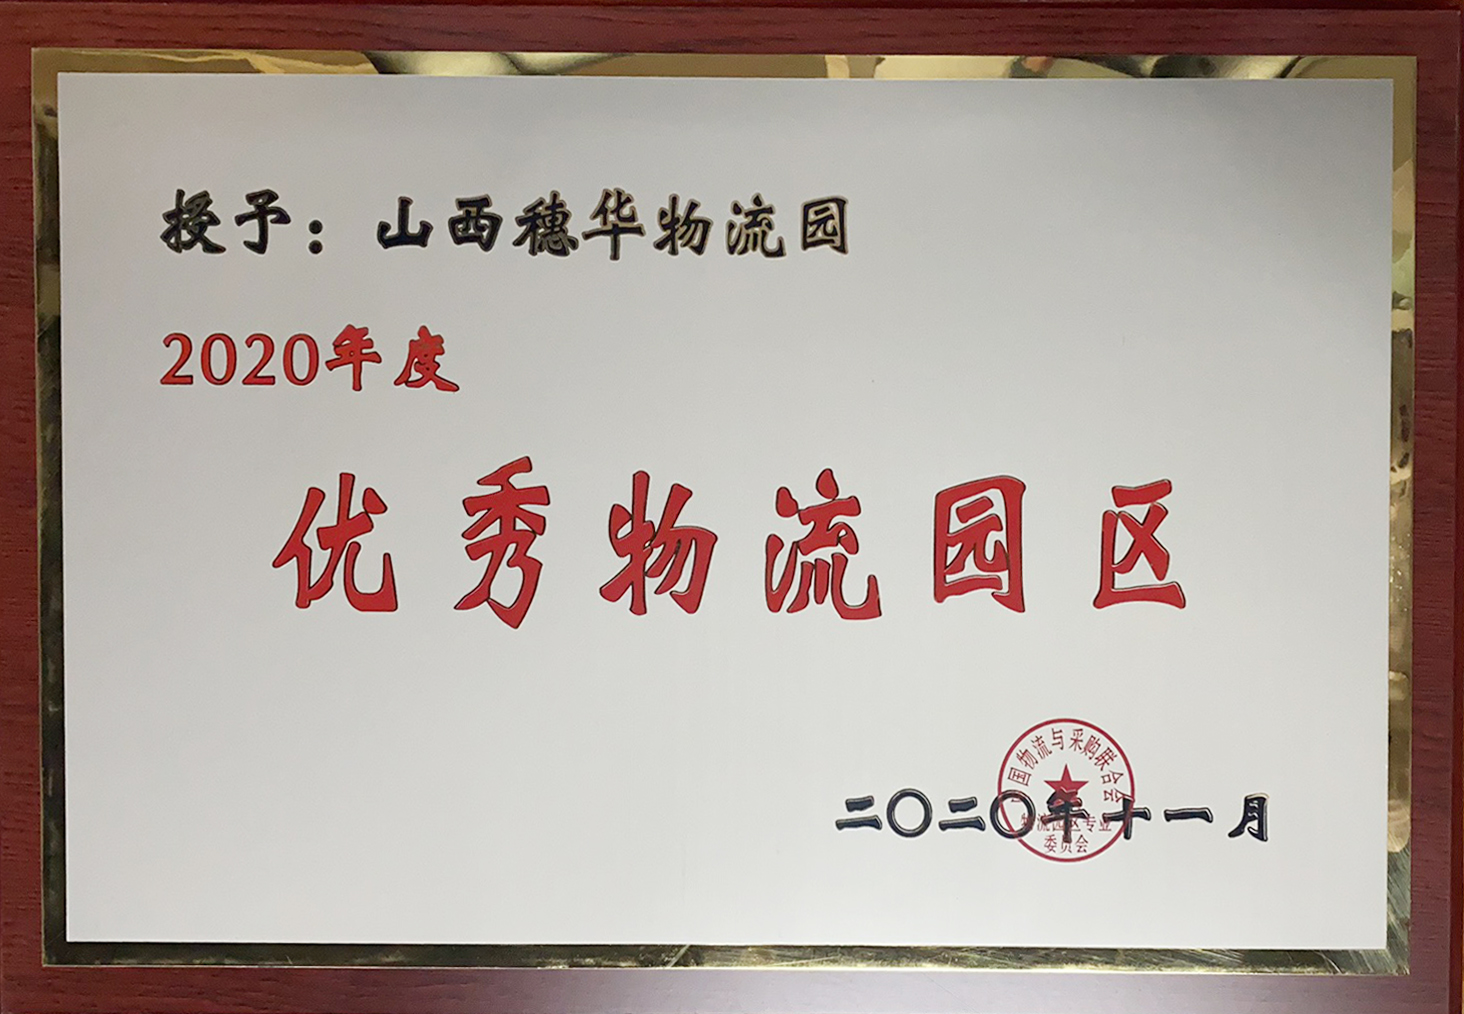 授予：山西穗华物流园
2020年度
优秀物流园区
二〇二〇年十一月
国物流与采购联合会
物流园区专业
委员会